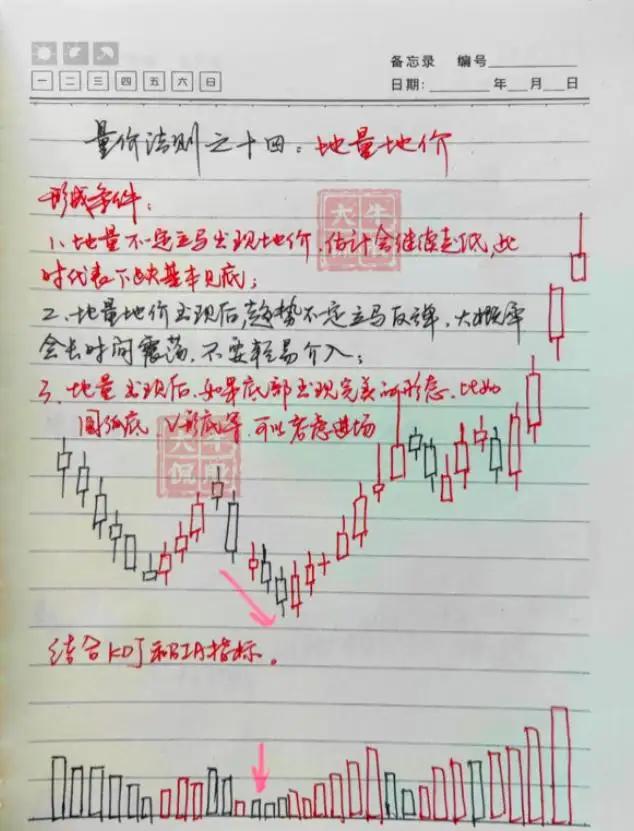 备忘录 编号
一 二 三 四 五 六 日
日期: 年 月 日
量价法则之十四:地量地价
形成条件:
1、地量不一定立马出现地价,估计会继续走低,此
时代表下跌基本见底;
2、地量地价出现后,趋势不一定立马反弹,大概率
会长时间震荡,不要轻易介入;
3、地量出现后,如果底部出现完美的形态,比如
圆弧底、V形底等,可以考虑进场
大牛
大牛
侃股
结合KDJ和BIA指标。